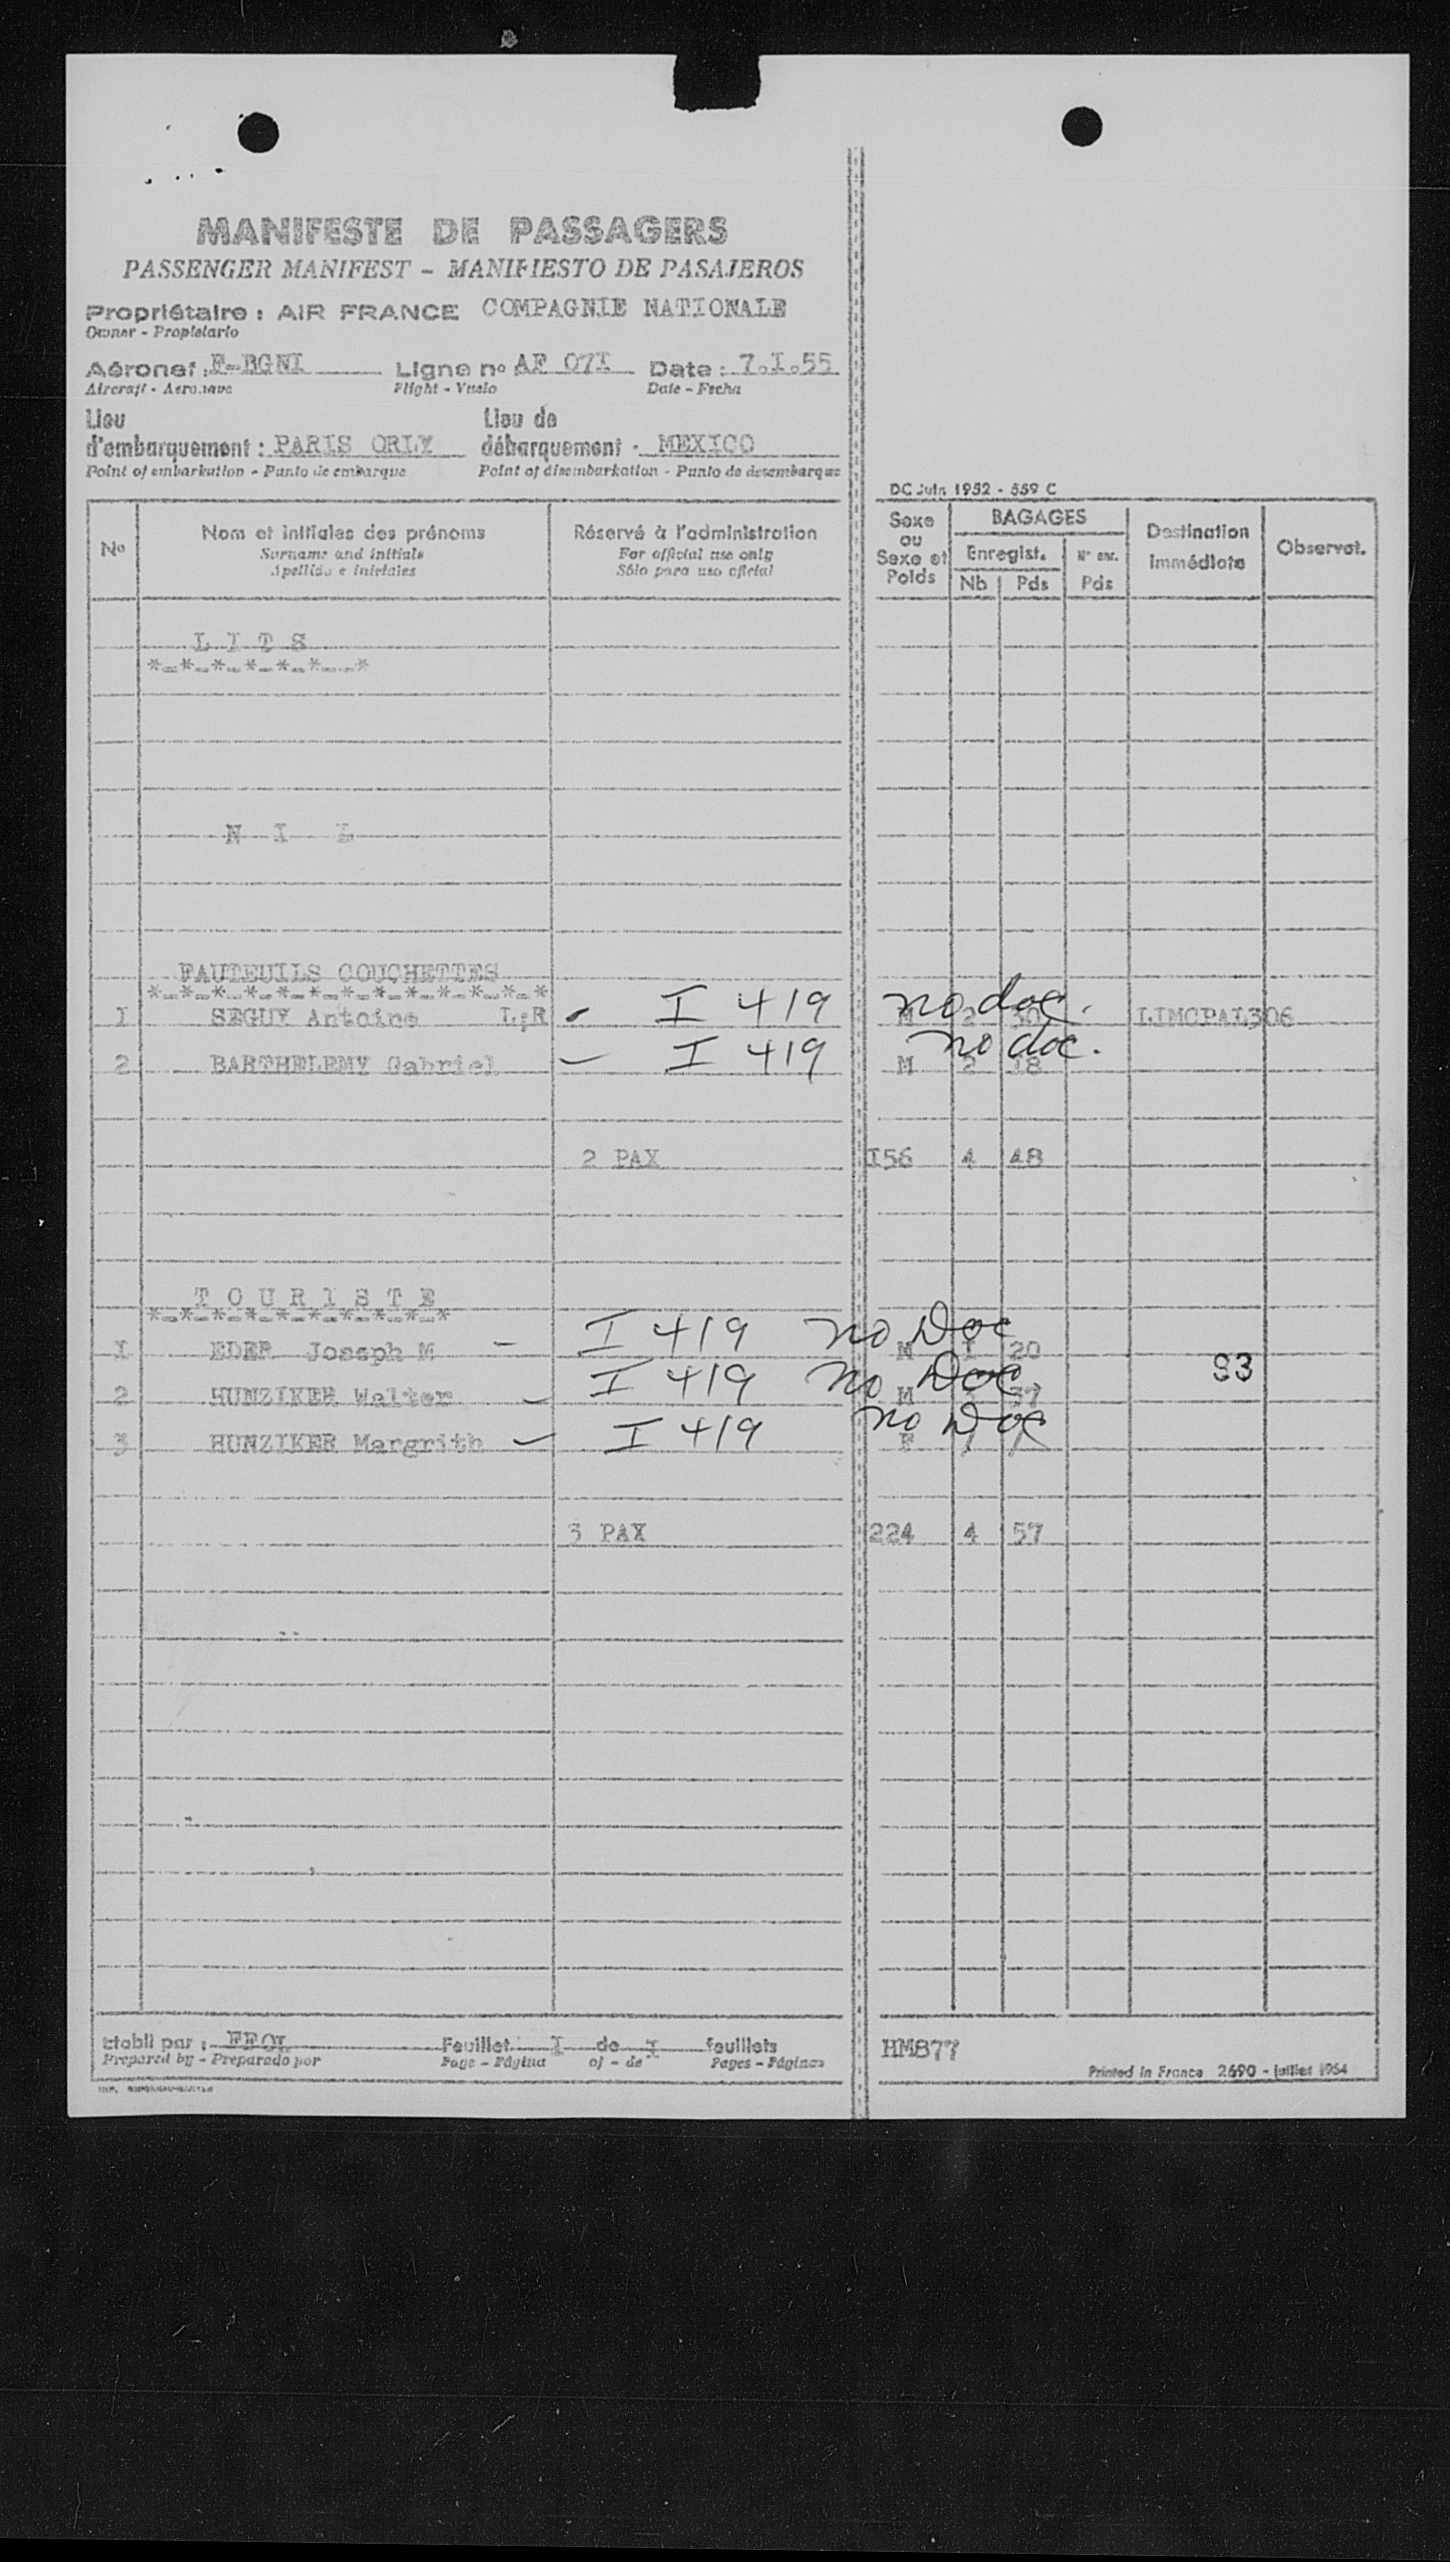 MANIFESTE DE PASSAGERS
PASSENGER MANIFEST - MANIFIESTO DE PASAJEROS
Propriétaire : AIR FRANCE COMPAGNIE NATIONALE
Owner - Propietario
Aéronef : F-BGNI Ligne no AF 07I Date : 7.I.55
Aircraft - Aeronave Flight - Vuelo Date - Fecha
Lieu Lieu de
d'embarquement : PARIS ORLY débarquement - MEXICO
Point of embarkation - Punto de embarque Point of disembarkation - Punto de desembarque
DC Juin 1952 - 559 C
No Nom et initiales des prénoms Réservé à l'administration Sexe ou Sexe et Poids BAGAGES Destination immédiate Observat.
Surname and initials For official use only Enregist. N° enr.
Apellido e iniciales Sólo para uso oficial Nb Pds Pds
L I T S
*-*-*-*-*-*-*
N I L
FAUTEUILS COUCHETTES
*-*-*-*-*-*-*-*-*-*-*-*-*
I SEGUY Antoine L;R - I 419 no doc. M 2 30 LIMCPAL306
2 BARTHELEMY Gabriel - I 419 no doc. M 2 18
2 PAX I56 4 48
T O U R I S T E
*-*-*-*-*-*-*-*-*-*
I EDER Joseph M - I 419 no Doc M I 20
2 HUNZIKER Walter - I 419 no Doc M 3 37 83
3 HUNZIKER Margrith - I 419 no Doc F / /
3 PAX 224 4 57
Etabli par : Feuillet I de I feuillets HM877
Prepared by - Preparado por Page - Página of - de Pages - Páginas
Printed in France 2690 - juillet 1954